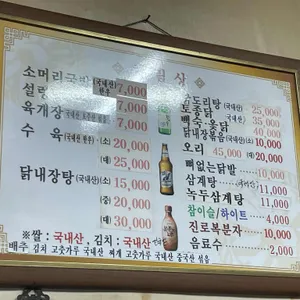 식사
소머리국밥(국내산 한우) 7,000
설렁탕 7,000
육개장 (국내산 한우) 7,000
수 육 (국내산 한우) (소) 20,000
(대) 25,000
닭내장탕 (국내산) (소) 15,000
(중) 20,000
(대) 30,000
닭도리탕 (국내산) 25,000
토종닭 (국내산) 35,000
백숙·옻닭 40,000
닭내장볶음 (국내산) (소) 10,000
오리 45,000 (대) 20,000
뼈없는닭발 10,000
삼계탕 10,000
녹두삼계탕 11,000
참이슬/하이트 4,000
진로복분자 10,000
음료수 2,000
※쌀 : 국내산, 김치 : 국내산
배추 김치 고춧가루 국내산 찌개 고춧가루 국내산 중국산 섞음